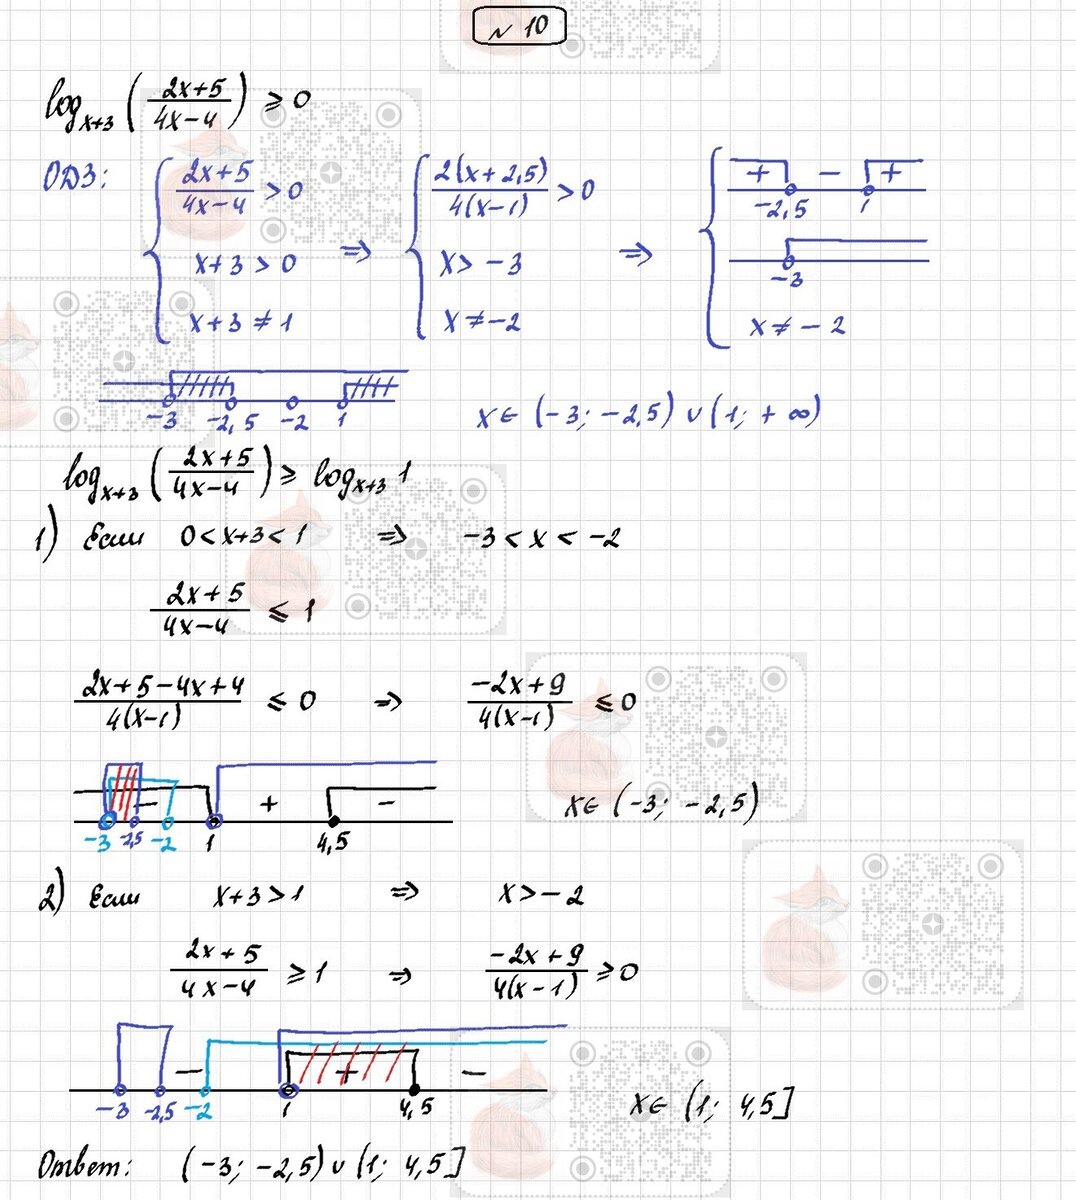 № 10
log_{x+3} ( (2x+5)/(4x-4) ) ≥ 0
ОДЗ: { (2x+5)/(4x-4) > 0 ⇒ { 2(x+2,5)/4(x-1) > 0 ⇒ { + -2,5 - 1 +
x+3 > 0 x > -3 -3
x+3 ≠ 1 x ≠ -2 x ≠ -2
-3 -2,5 -2 1 x ∈ (-3; -2,5) ∪ (1; +∞)
log_{x+3} ( (2x+5)/(4x-4) ) ≥ log_{x+3} 1
1) Если 0 < x+3 < 1 ⇒ -3 < x < -2
(2x+5)/(4x-4) ≤ 1
(2x+5-4x+4)/4(x-1) ≤ 0 ⇒ (-2x+9)/4(x-1) ≤ 0
- + -
-3 -2,5 -2 1 4,5 x ∈ (-3; -2,5)
2) Если x+3 > 1 ⇒ x > -2
(2x+5)/(4x-4) ≥ 1 ⇒ (-2x+9)/4(x-1) ≥ 0
- + -
-3 -2,5 -2 1 4,5 x ∈ (1; 4,5]
Ответ: (-3; -2,5) ∪ (1; 4,5]